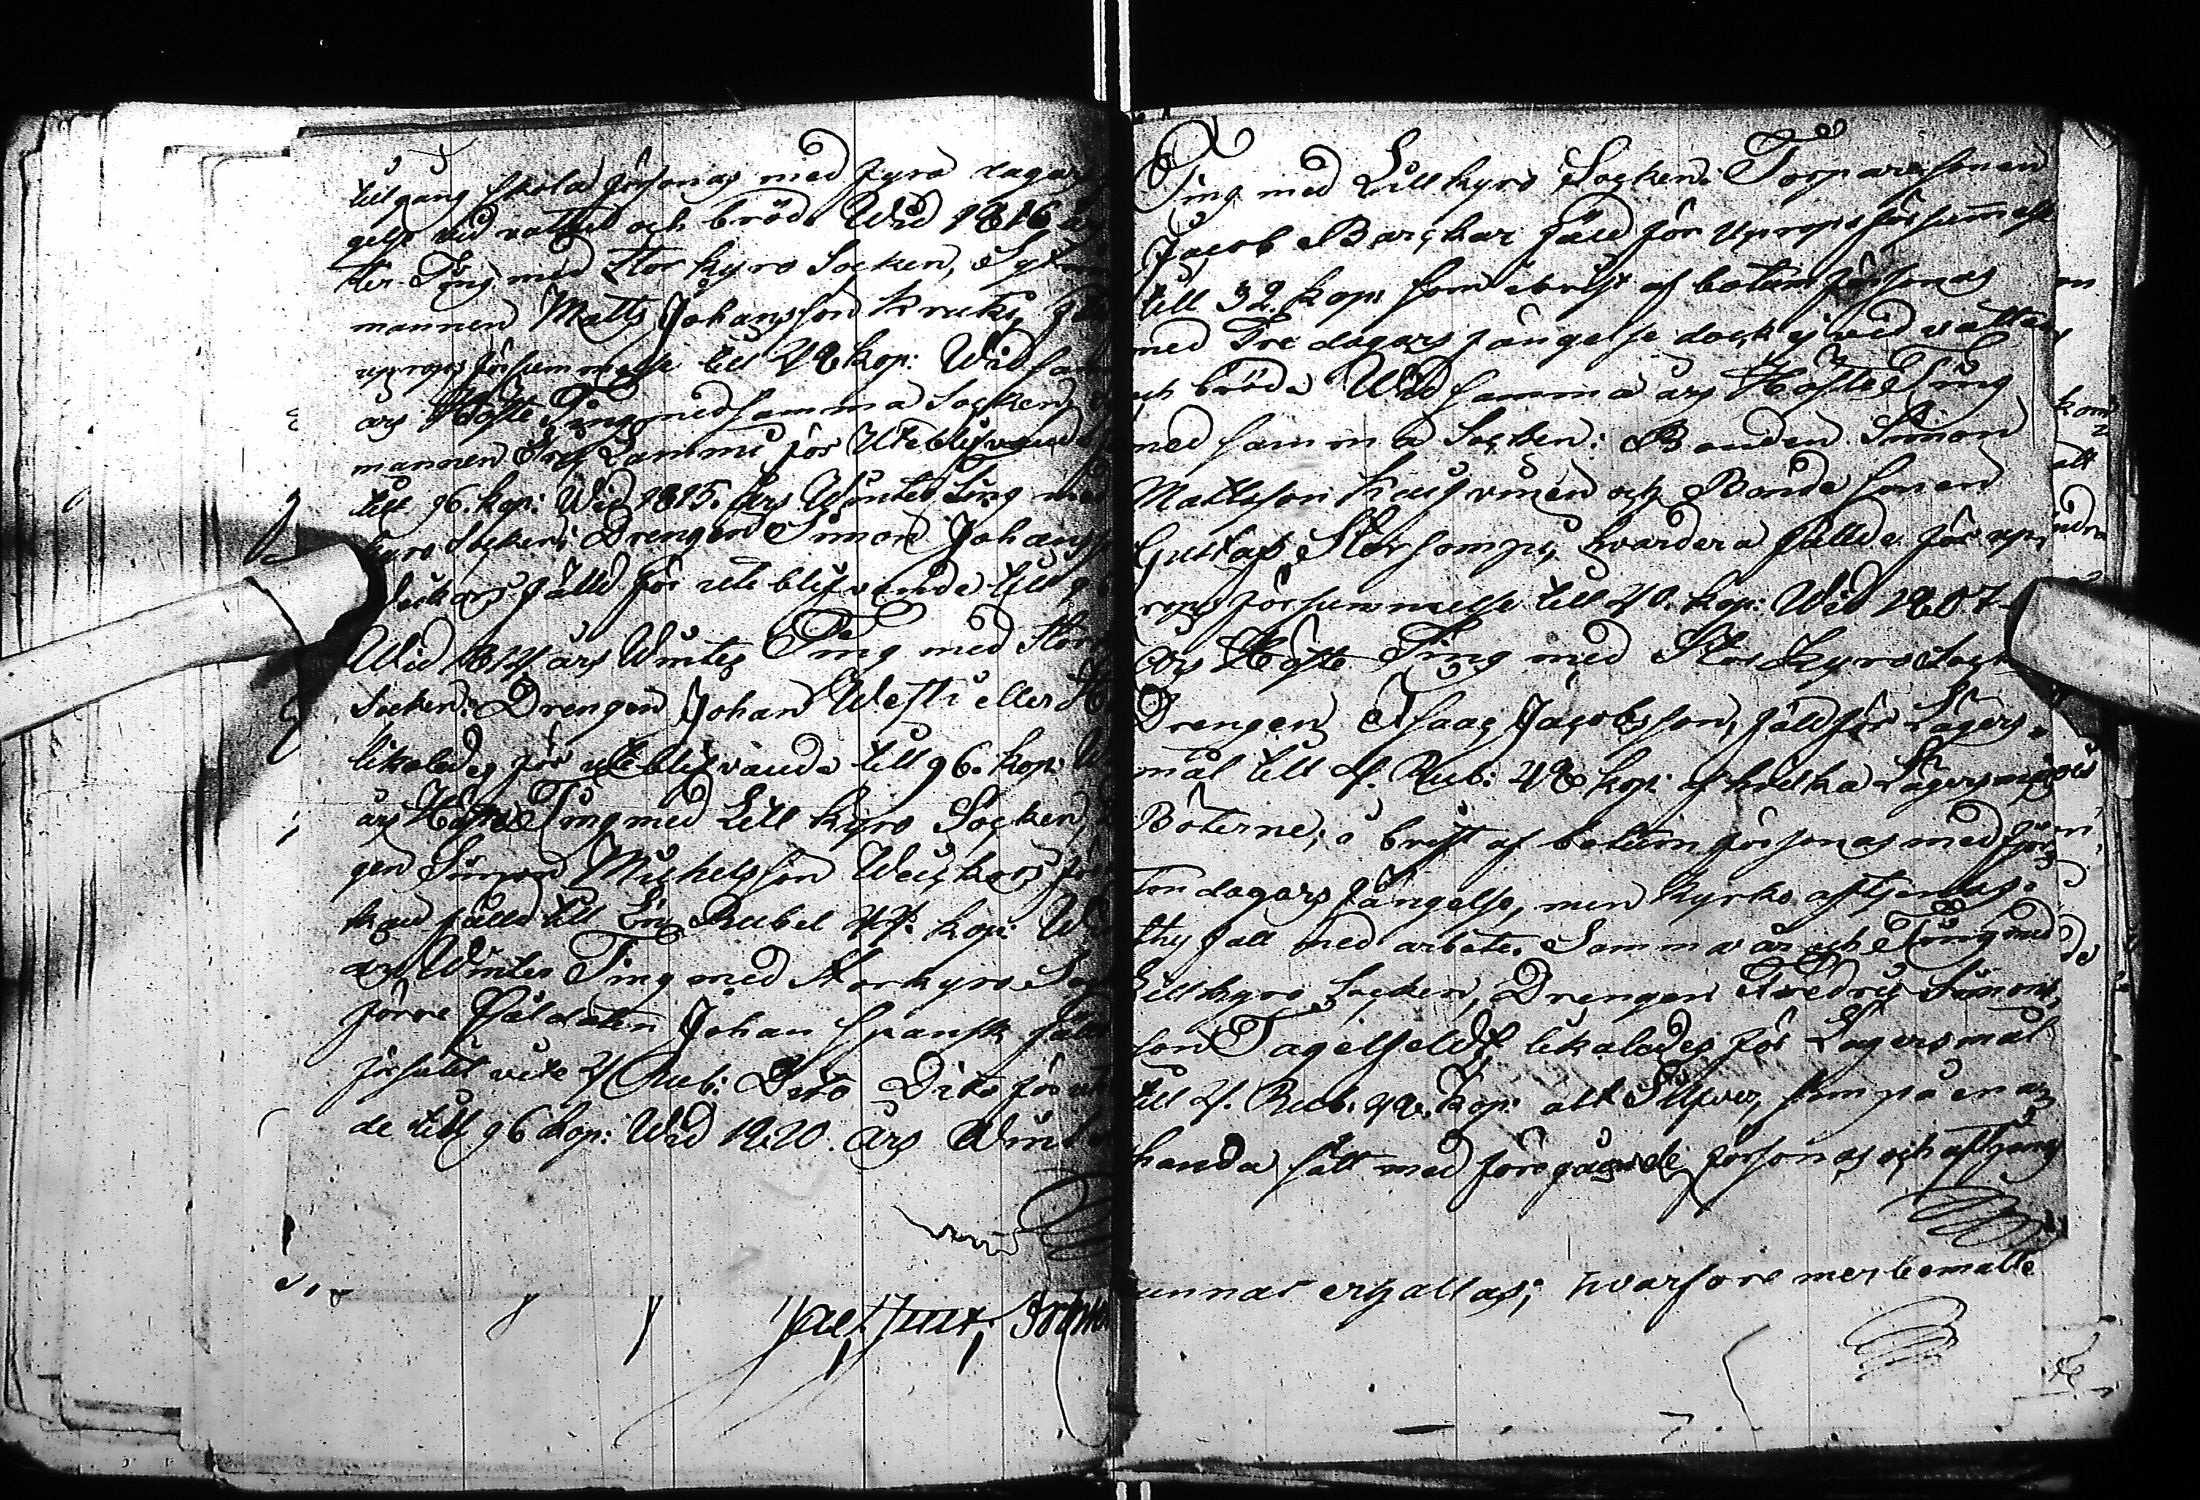 tillgang skola försonas med fyra dagars
gelse vid vatten och bröd. Wid 1816 år
ter Ting med Storkyro Socken, Sytn
mannen Matts Johansson Kruks, fäld
uprops försummelse till 48 kop: Wid sam
års Höste Ting med samma Socken
mannen Lammi för Uteblifvande
till 96. kop: Wid 1815. års Winter Ting med
kyro Socken, Drengen Simon Johans
fälld för uteblifvande till 9
Wid 1814 års Winter Ting med Stor
Socken: Drengen Johan Westi eller
likaledes för uteblifvande till 96. kop: W
års Höste Ting med Lill Kyro Socken,
gen Simon Michelsson Weickars för
fälld till En Rubel 44. kop: Wi
års Winter Ting med Storkyro So
förre Soldaten Johan Spansk fäld
försutit vite 4 Rub: Dito Dito för ut
de till 96 kop: Wid 1820. års Wint
Ting med Lillkyro Socken: Torparesonen
Jacob Barckar fäld för uprops försummelse
till 32. kop: som i brist af botum försonas
med Tre dagars fängelse dock ej vid vatten
och bröd. Wid samma års Höste Ting
med samma Socken: Bonden Simon
Mattsson och Bonde sonen
Gustaf Storsomppi, hvardera fällde för up,
rops försummelse till 40. kop: Wid 1807
års Höste Ting med Stor Kyro Sock
Drengen Isaac Jacobsson, fäld för Lägers,
mål till 4. Rub: 48 kop: af hvilka Lägersmåls
Böterne, i brist af botum försonas med fjor
ton dagars fängelse, men kyrko
thy fall med arbete. Samma år och Ting med
Lillkyro Socken, Drengen Fredric Simons,
son Tagelfeldt likaledes för Lägersmål
till 4. Rub: 48. kop: allt Silfver, som på en
handa sätt med föregående försonas, och
unnat erhållas; hvarföre merbemälte